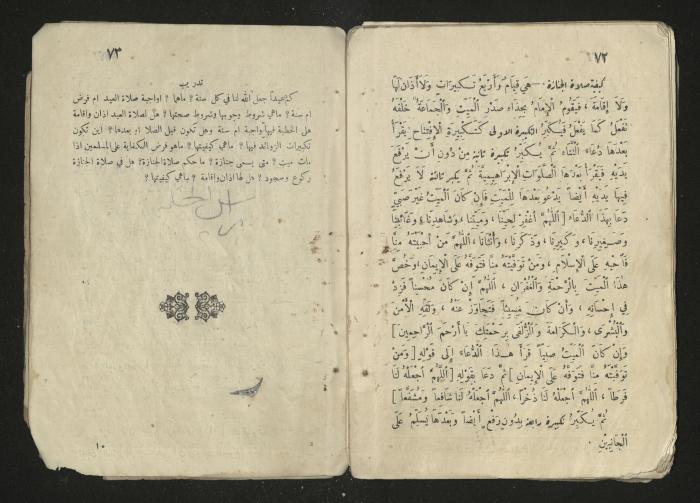 ٧٢
كيفية صلاة الجنازة. — هي قيام وأربع تكبيرات ولا أذان لها
ولا إقامة، فيقوم الإمام بحذاء صدر الميت والجماعة خلفه
تفعل كما يفعل فيكبر التكبيرة الأولى كتكبيرة الافتتاح يقرأ
بعدها دعاء الثناء ثم يكبر تكبيرة ثانية من دون أن يرفع
يديه فيقرأ بعدها الصلوات الإبراهيمية ثم يكبر ثالثة لا يرفع
فيها يديه أيضاً يدعو بعدها للميت فإن كان الميت غير صبي
دعا بهذا الدعاء [اللهم اغفر لحينا، وميتنا، وشاهدنا، وغائبنا
وصغيرنا، وكبيرنا، وذكرنا، وأنثانا، اللهم من أحييته منا
فأحيه على الإسلام، ومن توفيته منا فتوفه على الإيمان، وخص
هذا الميت بالرحمة والغفران، اللهم إن كان محسناً فزد
في إحسانه، وأن كان مسيئاً فتجاوز عنه، ولقه الأمن
والبشرى، والكرامة والزلفى برحمتك يا أرحم الراحمين]
وإن كان الميت صبياً قرأ هذا الدعاء إلى قوله [ومن
توفيته منا فتوفه على الإيمان] ثم دعا بقوله [اللهم اجعله لنا
فرطاً، اللهم اجعله لنا ذخراً، اللهم اجعله لنا شافعاً ومشفعاً]
ثم يكبر تكبيرة رابعة بدون رفع أيضاً وبعدها يسلم على
الجانبين.
٧٣
تدريب
كم عيداً جعل الله لنا في كل سنة؟ ماهما؟ اواجبة صلاة العيد ام فرض
ام سنة؟ ماهي شروط وجوبها وشروط صحتها؟ هل لصلاة العيد اذان واقامة
هل الخطبة فيها واجبة ام سنة وهل تكون قبل الصلاة او بعدها؟ اين تكون
تكبيرات الزوائد فيها؟ ماهي كيفيتها؟ ماهو فرض الكفاية على المسلمين اذا
مات ميت؟ متى يسمى جنازة؟ ما حكم صلاة الجنازة؟ هل في صلاة الجنازة
ركوع وسجود؟ هل لها اذان واقامة؟ ماهي كيفيتها؟
١٠